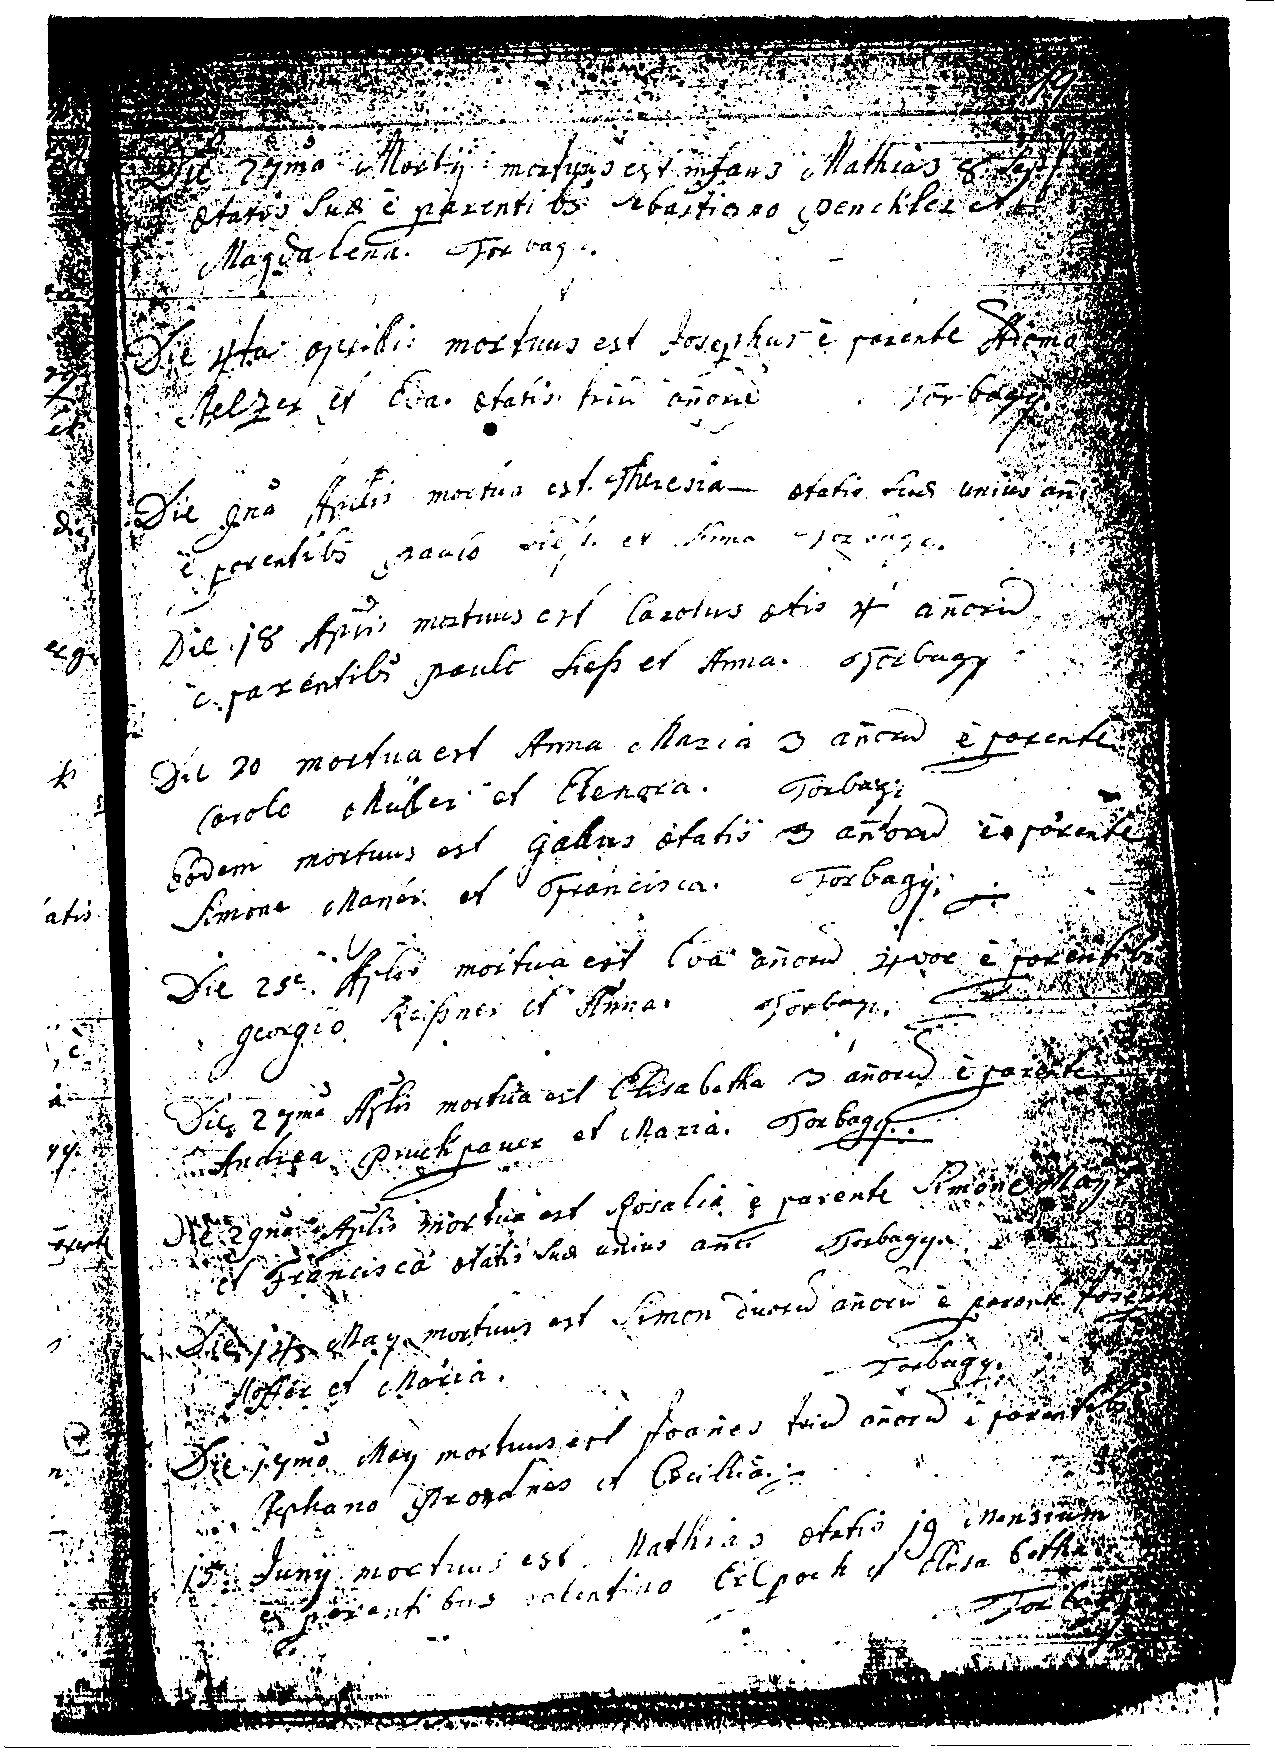 19
Die 27mo Martij mortuus est infans Mathias 8
ætatis Suæ è parentibs Sebastiano penckler et
Magdalena. Torbagi.
Die 4ta aprilis mortuus est Josephus è parente
Aelzer et Eva. ætatis triū añorū Torbagy.
Die 9na Aprilis mortua est Theresia ætatis suæ unius añi
è parentibs et Torbagi.
Die 18 Aprilis mortuus est Carolus ætis 4 añorū
è parentibs paulo Liess et Anna. Torbagy
Die 20 mortua est Anna Maria 3 añorū è parente
Carolo Müller et Elenora. Torbagi
Eodem mortuus est gallus ætatis 3 añorū è parente
Simone Mayer et Francisca. Torbagÿ.
Die 25ta Aplis mortua est Eva añorū è parentibs
georgio Reissner et Anna. Torbagi.
Die 27ma Aplis mortua est Elisabetha 3 añorū è parente
Andrea Pruckpauer et Maria. Torbagy.
Die 29na Aplis mortua est Rosalia è parente Simone May
et Francisca ætatis suæ unius añi Torbagy.
Die 14 May mortuus est Simon duorū añorū è parente Joseph
Hoffer et Maria. Torbagy.
Die 17mo May mortuus est Joañes triū añorū è parentibs
Stephano et Cecillia.
15 Junÿ mortuus est Mathias ætatis 19 Mensium
è parentibus valentino Erlpock et Elisabetha
Torbagy